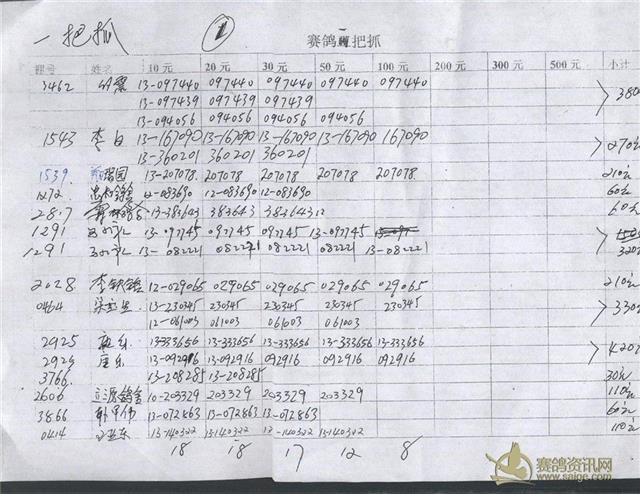 一把抓 ① 赛鸽 把抓
棚号 姓名 10元 20元 30元 50元 100元 200元 300元 500元 小计
3462 13-097440 097440 097440 097440 097440
13-097439 097439 097439 380
13-094056 094056 094056 094056
1543 李白 13-167090 13-167090 13-167090 13-167090 167090
13-360201 360201 360201 270元
1539 13-207078 207078 207078 207078 207078 210元
1272 12-083690 12-083690 12-083690 60元
2817 13-383643 383643 383643 60元
1291 13-097745 097745 097745 13-097745
1291 13-082221 082221 082221 082221 13-082221 320元
2028 李 12-029065 029065 029065 029065 029065 210元
0464 梁 13-230345 230345 230345 230345 230345 330
12-061003 061003 061003 061003
2925 13-333656 13-333656 13-333656 13-333656 13-333656
2925 13-092916 13-092916 092916 092916 092916 420元
3766 13-208285 13-208285 30元
2606 立源鸽舍 10-203329 203329 203329 203329 110元
3866 韩 伟 13-072863 13-072863 13-072863 60元
0414 东 13-140322 13-140322 13-140322 13-140322 110元
18 18 17 12 8
赛鸽资讯网
www.saige.com